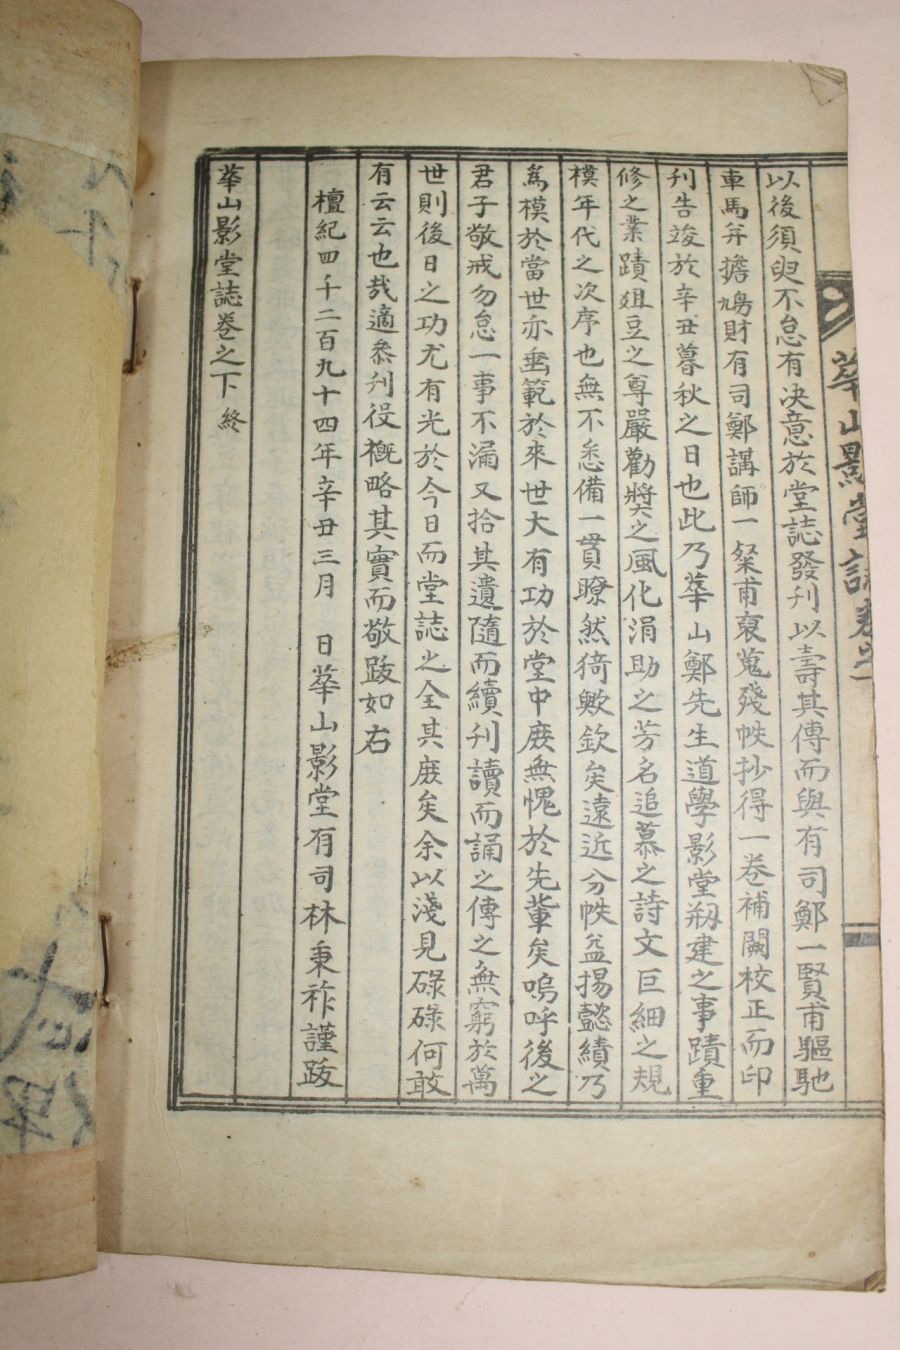 華山影堂誌卷之
以後須臾不怠有决意於堂誌發刋以壽其傳而與有司鄭一賢甫驅馳
車馬弁擔鳩財有司鄭講師一粲甫裒蒐殘帙抄得一卷補闕校正而印
刋告竣於辛丑暮秋之日也此乃華山鄭先生道學影堂刱建之事蹟重
修之業蹟俎豆之尊嚴勸獎之風化涓助之芳名追慕之詩文巨細之規
模年代之次序也無不悉備一貫瞭然猗歟欽矣遠近分帙益揚懿績乃
爲模於當世亦垂範於來世大有功於堂中庶無愧於先輩矣嗚呼後之
君子敬戒勿怠一事不漏又拾其遺隨而續刋讀而誦之傳之無窮於萬
世則後日之功尤有光於今日而堂誌之全其庶矣余以淺見碌碌何敢
有云云也哉適叅刋役槪略其實而敬跋如右
檀紀四千二百九十四年辛丑三月　日華山影堂有司林秉祚謹跋
華山影堂誌卷之下 終